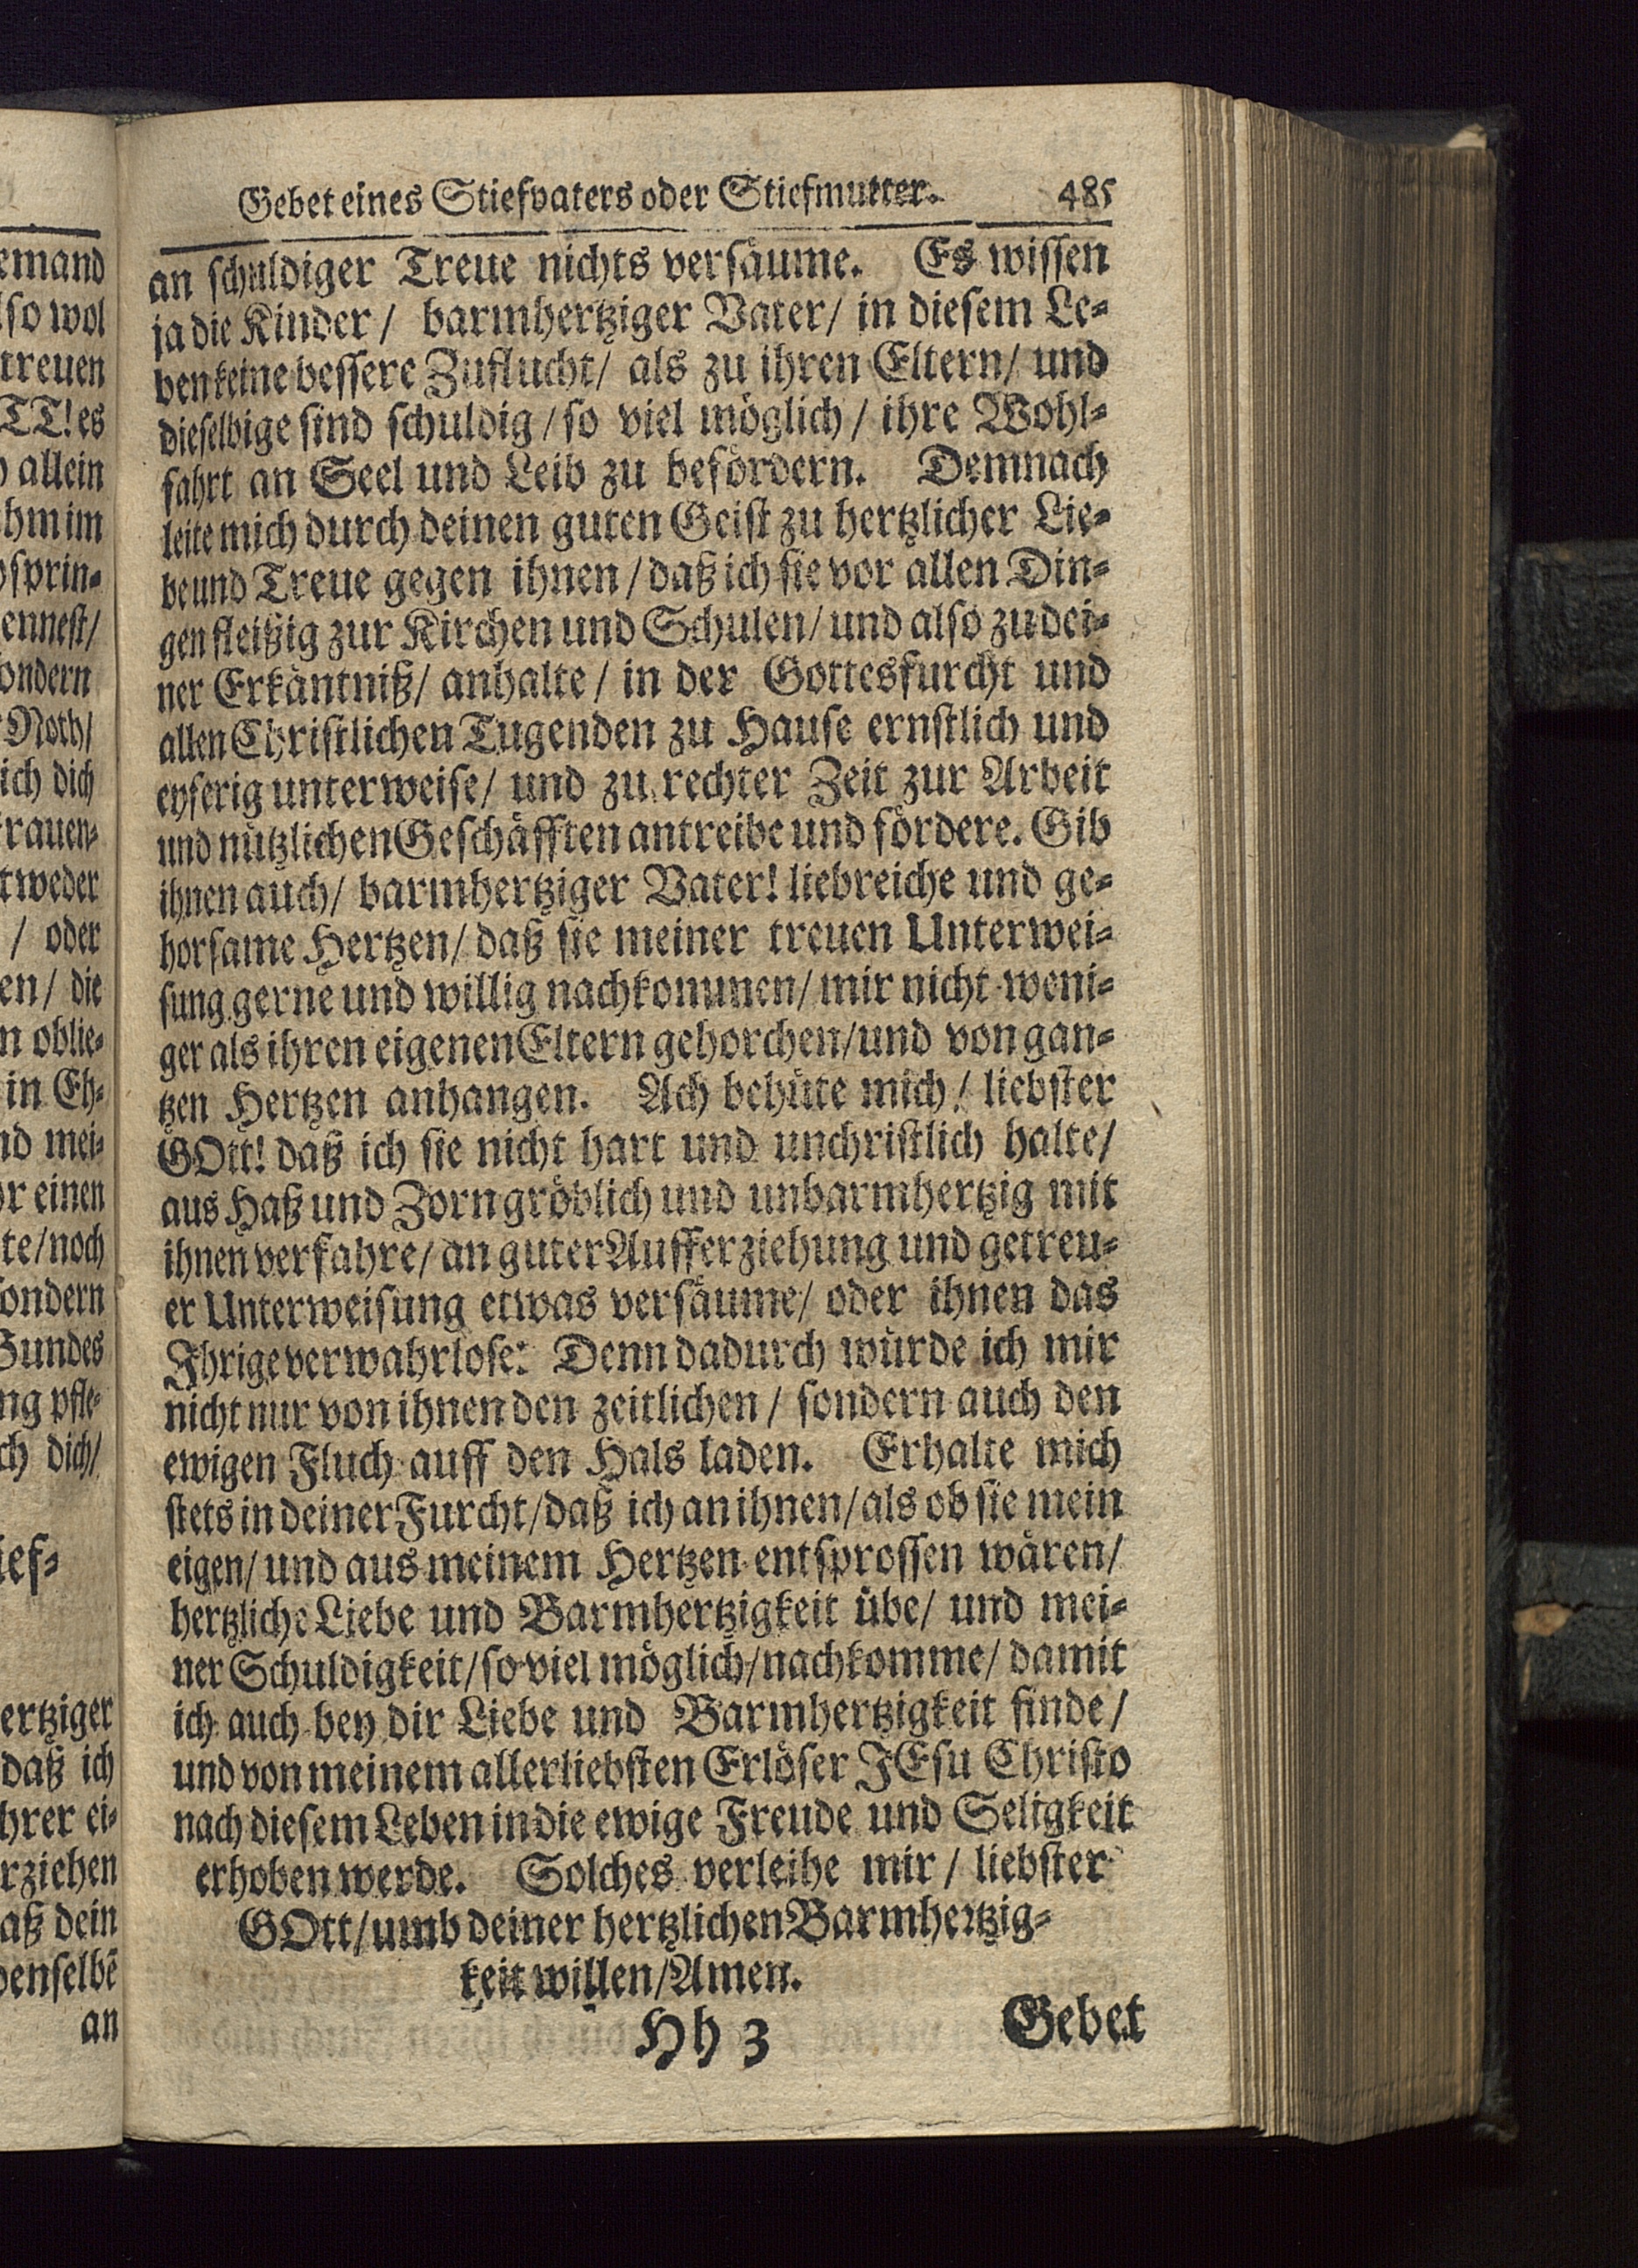 Gebet eines Stiefvaters oder Stiefmutter. 485
an schuldiger Treue nichts versäume. Es wissen
ja die Kinder / barmhertziger Vater / in diesem Le-
ben keine bessere Zuflucht / als zu ihren Eltern / und
dieselbige sind schuldig / so viel möglich / ihre Wohl-
fahrt an Seel und Leib zu befördern. Demnach
leite mich durch deinen guten Geist zu hertzlicher Lie-
be und Treue gegen ihnen / daß ich sie vor allen Din-
gen fleißig zur Kirchen und Schulen / und also zu dei-
ner Erkäntniß / anhalte / in der Gottesfurcht und
allen Christlichen Tugenden zu Hause ernstlich und
eyferig unterweise / und zu rechter Zeit zur Arbeit
und nützlichen Geschäfften antreibe und fördere. Gib
ihnen auch / barmhertziger Vater! liebreiche und ge-
horsame Hertzen / daß sie meiner treuen Unterwei-
sung gerne und willig nachkommen / mir nicht weni-
ger als ihren eigenen Eltern gehorchen / und von gan-
tzen Hertzen anhangen. Ach behüte mich / liebster
GOtt! daß ich sie nicht hart und unchristlich halte /
aus Haß und Zorn gröblich und unbarmhertzig mit
ihnen verfahre / an guter Aufferziehung und getreu-
er Unterweisung etwas versäume / oder ihnen das
Ihrige verwahrlose: Denn dadurch würde ich mir
nicht nur von ihnen den zeitlichen / sondern auch den
ewigen Fluch auff den Hals laden. Erhalte mich
stets in deiner Furcht / daß ich an ihnen / als ob sie mein
eigen / und aus meinem Hertzen entsprossen wären /
hertzliche Liebe und Barmhertzigkeit übe / und mei-
ner Schuldigkeit / so viel möglich / nachkomme / damit
ich auch bey dir Liebe und Barmhertzigkeit finde /
und von meinem allerliebsten Erlöser JEsu Christo
nach diesem Leben in die ewige Freude und Seligkeit
erhoben werde. Solches verleihe mir / liebster
GOtt / umb deiner hertzlichen Barmhertzig-
keit willen / Amen.
Hh 3 Gebet